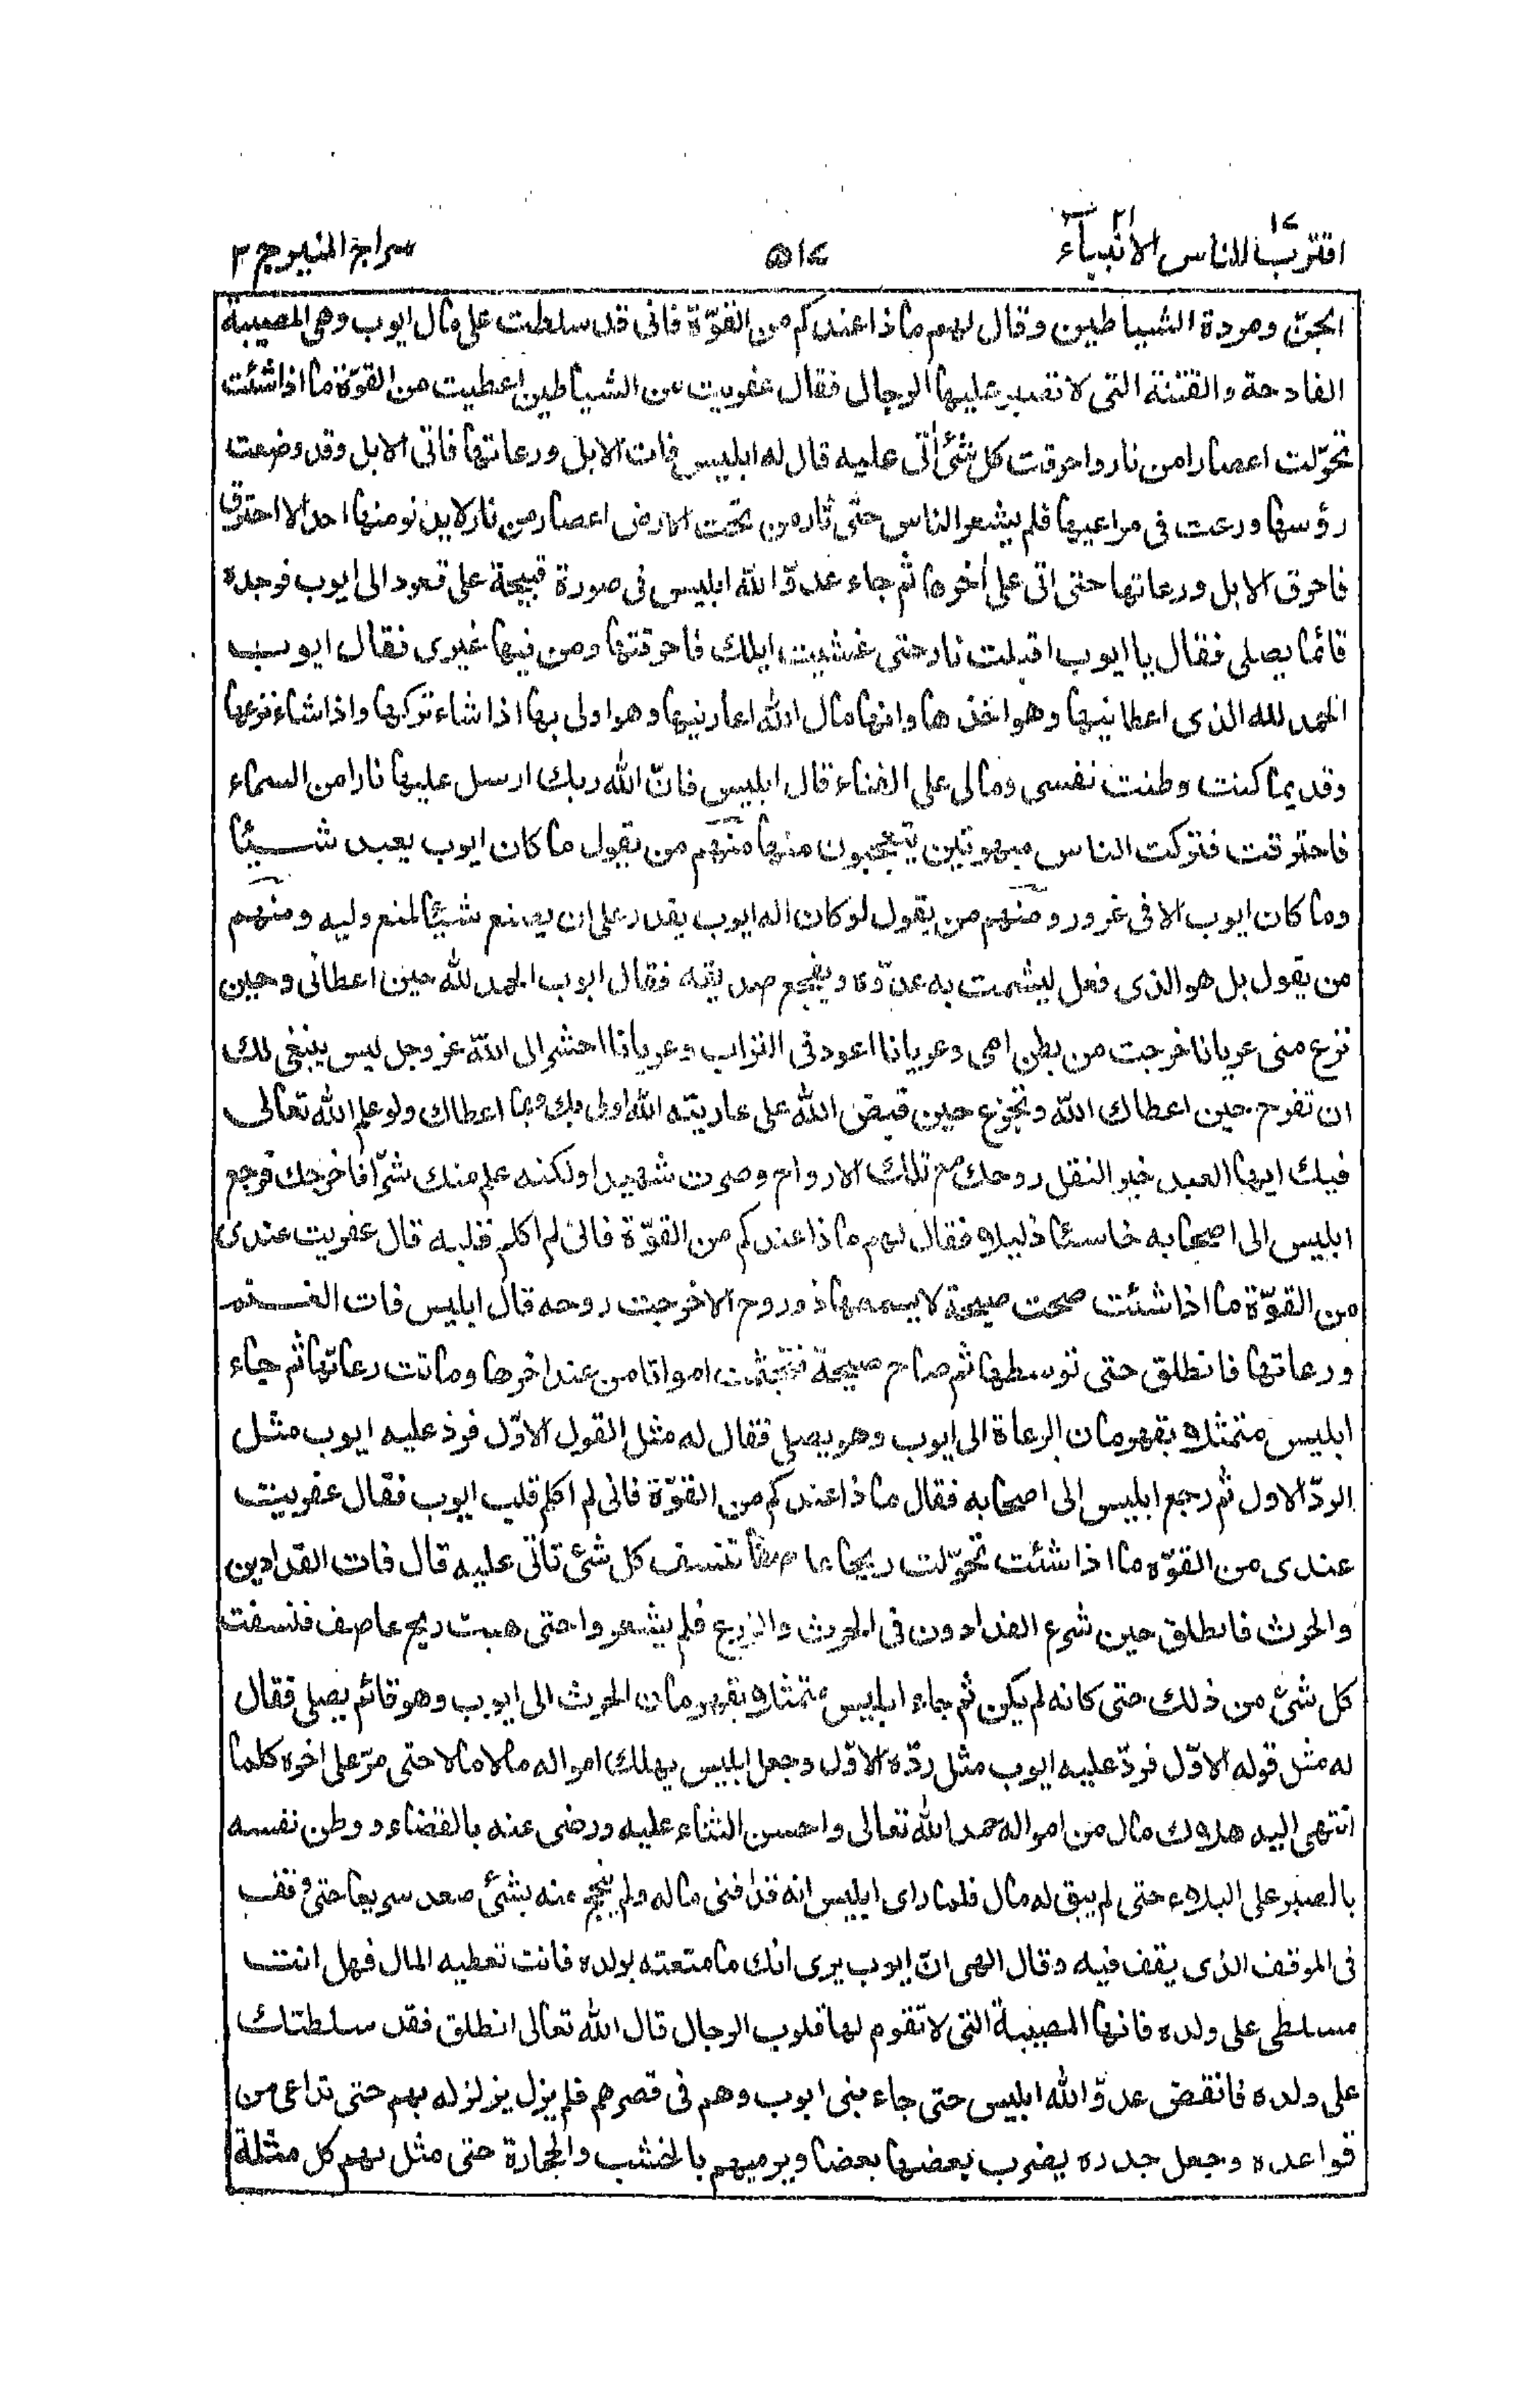 اقترب للناس ١٧ الانبياء ٢١
٥١٧
سراج المنير ج ٣
الجنّ ومردة الشياطين وقال لهم ماذا عندكم من القوّة فانى قد سلطت على مال ايوب وهى المصيبة
الفادحة والفتنة التى لا تصبر عليها الرجال فقال عفريت من الشياطين اعطيت من القوّة ما اذا شئت
تحوّلت اعصارا من نار واحرقت كل شئ اٰتى عليه قال له ابليس فات الابل ورعاتها فاتى الابل وقد وضعت
رؤسها ورعت فى مراعيها فلم يشعر الناس حتّى ثار من تحت الارض اعصار من نار لا يدنو منها احد الا احترق
فاحرق الابل ورعاتها حتى اتى على اٰخرها ثم جاء عدوّ الله ابليس فى صورة قبيحة على قعود الى ايوب فوجده
قائما يصلى فقال يا ايوب اقبلت نار حتى غشيت ابلك فاحرقتها ومن فيها غيرى فقال ايوب
الحمد لله الذى اعطانيها وهو اخذها وانها مال الله اعارنيها وهو اولى بها اذا شاء تركها واذا شاء نزعها
وقديما كنت وطنت نفسى ومالى على الفناء قال ابليس فانّ الله ربك ارسل عليها نارا من السماء
فاحترقت فتركت الناس مبهوتين يتعجبون منها منهم من يقول ما كان ايوب يعبد شيئا
وما كان ايوب الا فى غرور ومنهم من يقول لو كان اله ايوب يقدر على ان يصنع شيئا لمنع وليه ومنهم
من يقول بل هو الذى فعل ليشمت به عدوّه ويفجع صديقه فقال ايوب الحمد لله حين اعطانى وحين
نزع منى عريانا خرجت من بطن امى وعريانا اعود فى التراب وعريانا احشر الى الله عز وجل ليس ينبغى لك
ان تفرح حين اعطاك الله وتجزع حين قبض الله على عاريته الله اولى بك وبما اعطاك ولو علم الله تعالى
فيك ايها العبد خيرا لنقل روحك مع تلك الارواح وصرت شهيدا ولكنه علم منك شرّا فاخرجك فرجع
ابليس الى اصحابه خاسئا ذليلا فقال لهم ماذا عندكم من القوّة فانى لم اكلم قلبه قال عفريت عندى
من القوّة ما اذا شئت صحت صيحة لا يسمعها ذو روح الا خرجت روحه قال ابليس فات الغنم
ورعاتها فانطلق حتى توسطها ثم صاح صيحة فتجثمت امواتا من عند اخرها وماتت رعاتها ثم جاء
ابليس متمثلا بقهرمان الرعاة الى ايوب وهو يصلى فقال له مثل القول الاوّل فرد عليه ايوب مثل
الردّ الاول ثم رجع ابليس الى اصحابه فقال ماذا عندكم من القوّة فانى لم اكلم قلب ايوب فقال عفريت
عندى من القوّه ما اذا شئت تحوّلت ريحا عاصفا تنسف كل شئ تاتى عليه قال فات الفدادين
والحرث فانطلق حين شرع الفدادون فى الحرث والزرع فلم يشعروا حتى هبت ريح عاصف فنسفت
كل شئ من ذلك حتى كانه لم يكن ثم جاء ابليس متمثلا بقهرمان الحرث الى ايوب وهو قائم يصلى فقال
له مثل قوله الاوّل فردّ عليه ايوب مثل ردّه الاوّل وجعل ابليس يهلك امواله مالا مالا حتى مرّ على اخره كلما
انتهى اليه هلاك مال من امواله حمد الله تعالى واحسن الثناء عليه ورضى عنه بالقضاء ووطن نفسه
بالصبر على البلاء حتى لم يبق له مال فلما راى ابليس انه قد افنى ماله ولم ينجح منه بشئ صعد سريعا حتى وقف
فى الموقف الذى يقف فيه وقال الهى انّ ايوب يرى انك ما متعته بولده فانت تعطيه المال فهل انت
مسلطى على ولده فانها المصيبة التى لا تقوم لها قلوب الرجال قال الله تعالى انطلق فقد سلطتك
على ولده فانقض عدوّ الله ابليس حتى جاء بنى ايوب وهم فى قصرهم فلم يزل يزلزله بهم حتى تداعى من
قواعده وجعل جدره يضرب بعضها بعضا ويرميهم بالخشب والحجارة حتى مثل بهم كل مثلة